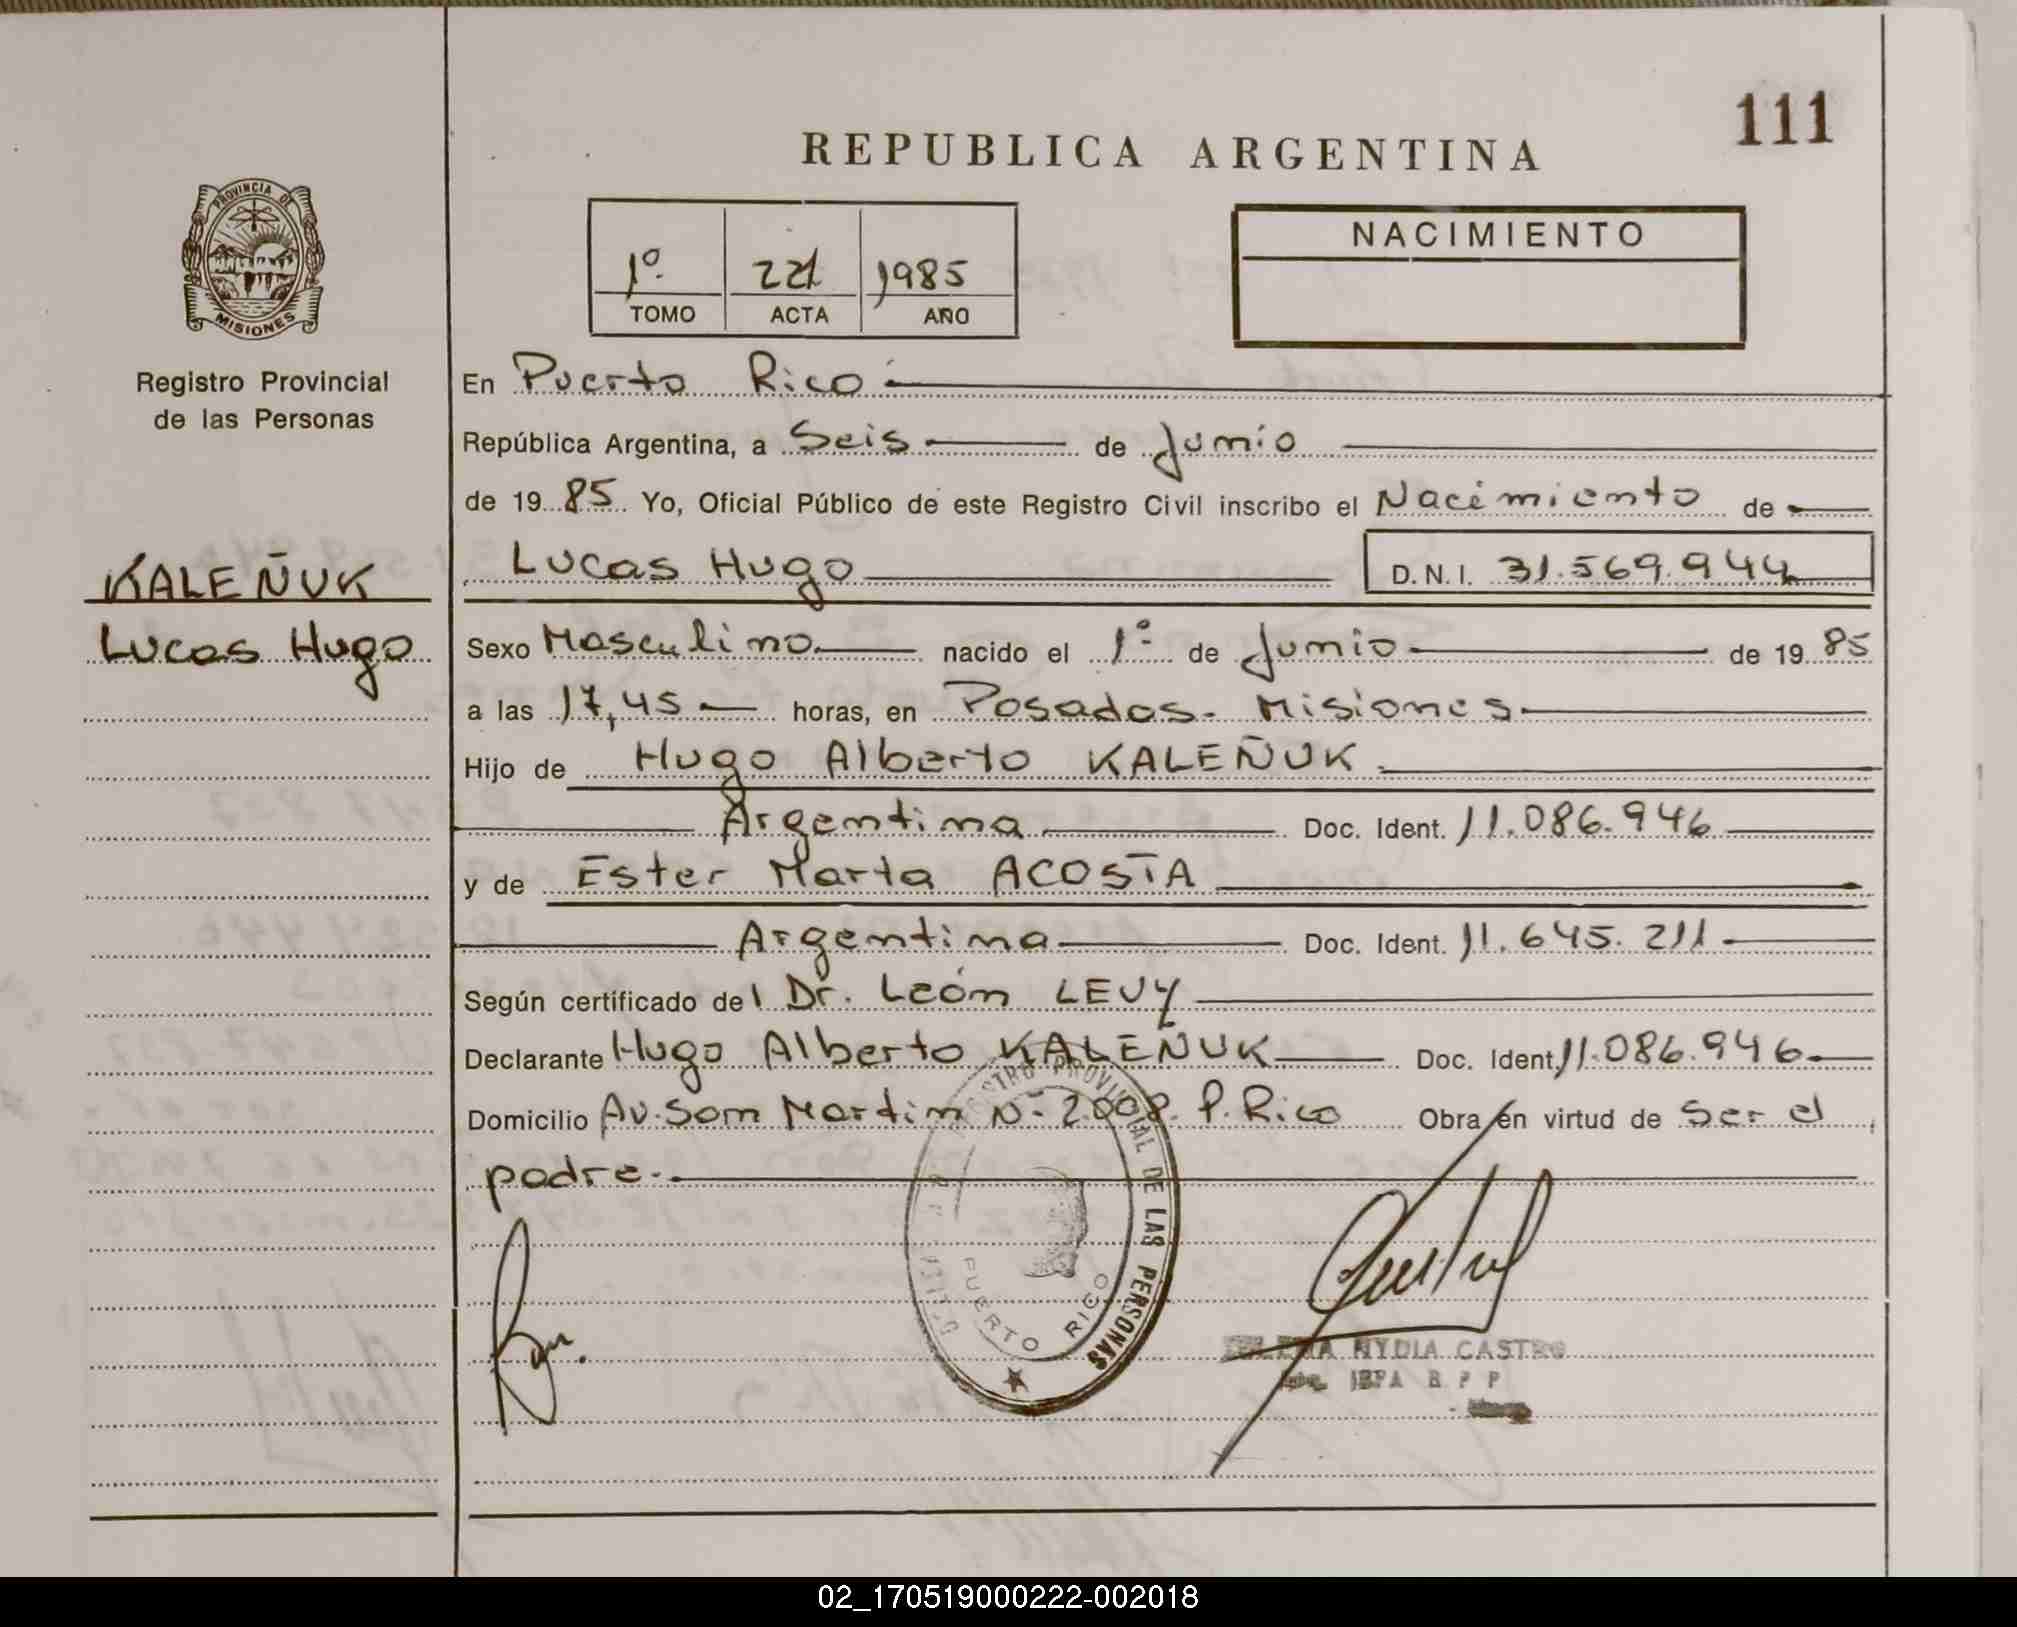 111
REPUBLICA ARGENTINA
PROVINCIA DE
MISIONES
Registro Provincial
de las Personas
1º 221 1985
TOMO ACTA AÑO
NACIMIENTO
En Puerto Rico
República Argentina, a Seis de Junio
de 1985 Yo, Oficial Público de este Registro Civil inscribo el Nacimiento de
KALEÑUK
Lucas Hugo D.N.I. 31.569.944
Lucas Hugo
Sexo Masculino nacido el 1º de Junio de 1985
a las 17,45 horas, en Posadas- Misiones
Hijo de Hugo Alberto KALEÑUK
Argentina Doc. Ident. 11.086.946
y de Ester Marta ACOSTA
Argentina Doc. Ident. 11.645.211
Según certificado del Dr. León LEVY
Declarante Hugo Alberto KALEÑUK Doc. Ident. 11.086.946
Domicilio Av. San Martin Nº 2008. P. Rico Obra en virtud de ser el
padre.
REGISTRO PROVINCIAL DE LAS PERSONAS
PUERTO RICO
NYDIA CASTRO
JEFA R P P
02_170519000222-002018